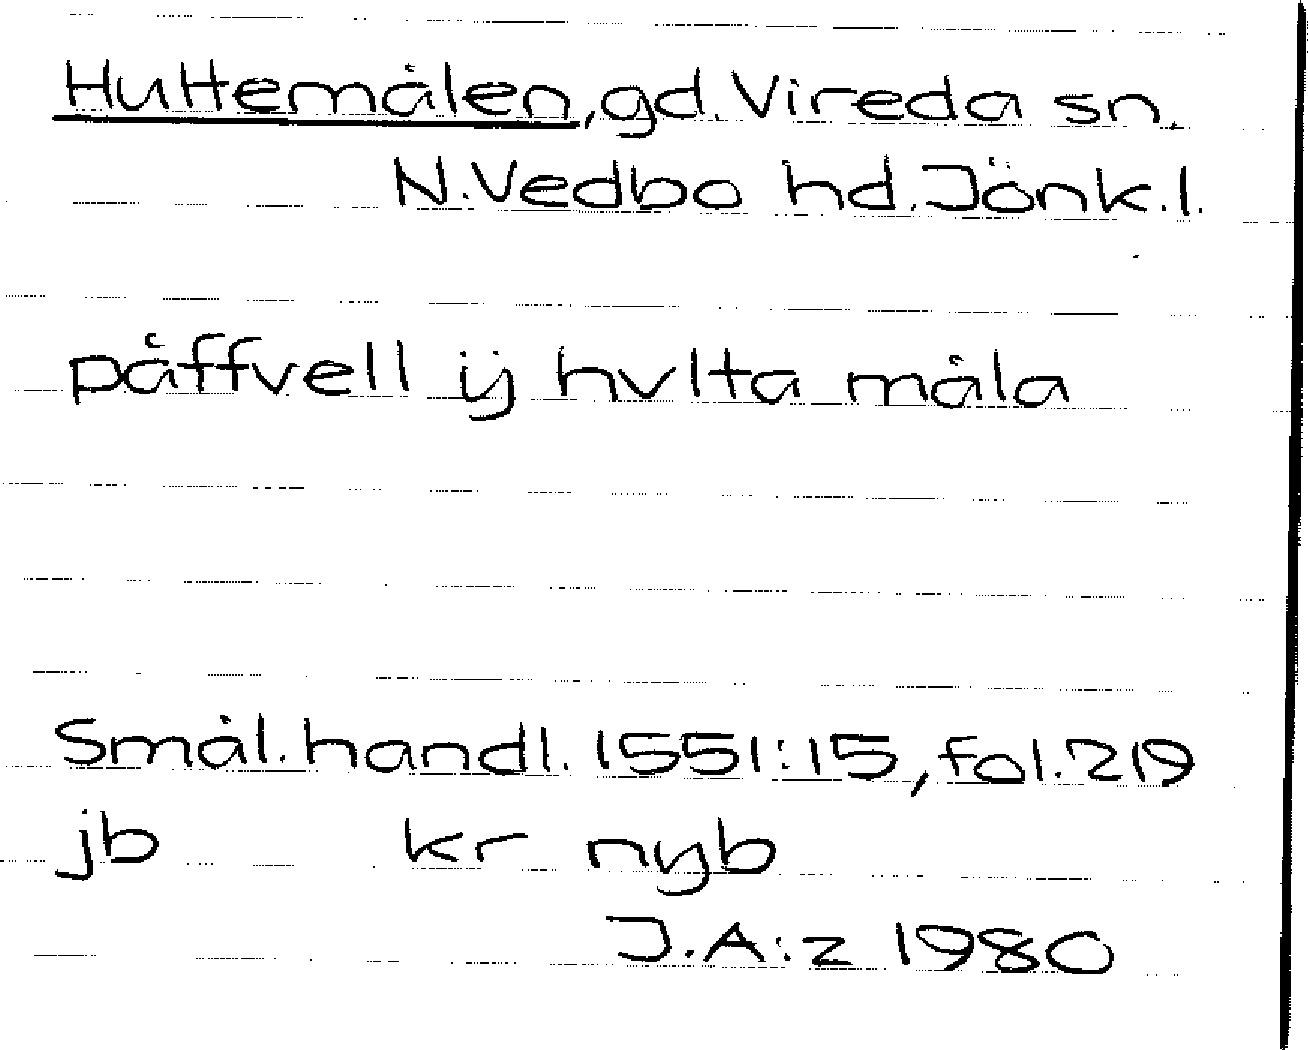 Hultemålen, gd. Vireda sn.
N. Vedbo hd. Jönk. l.
påffvell ij hvlta måla
Smål. handl. 1551:15, fol. 219
jb kr nyb
J.A:z 1980